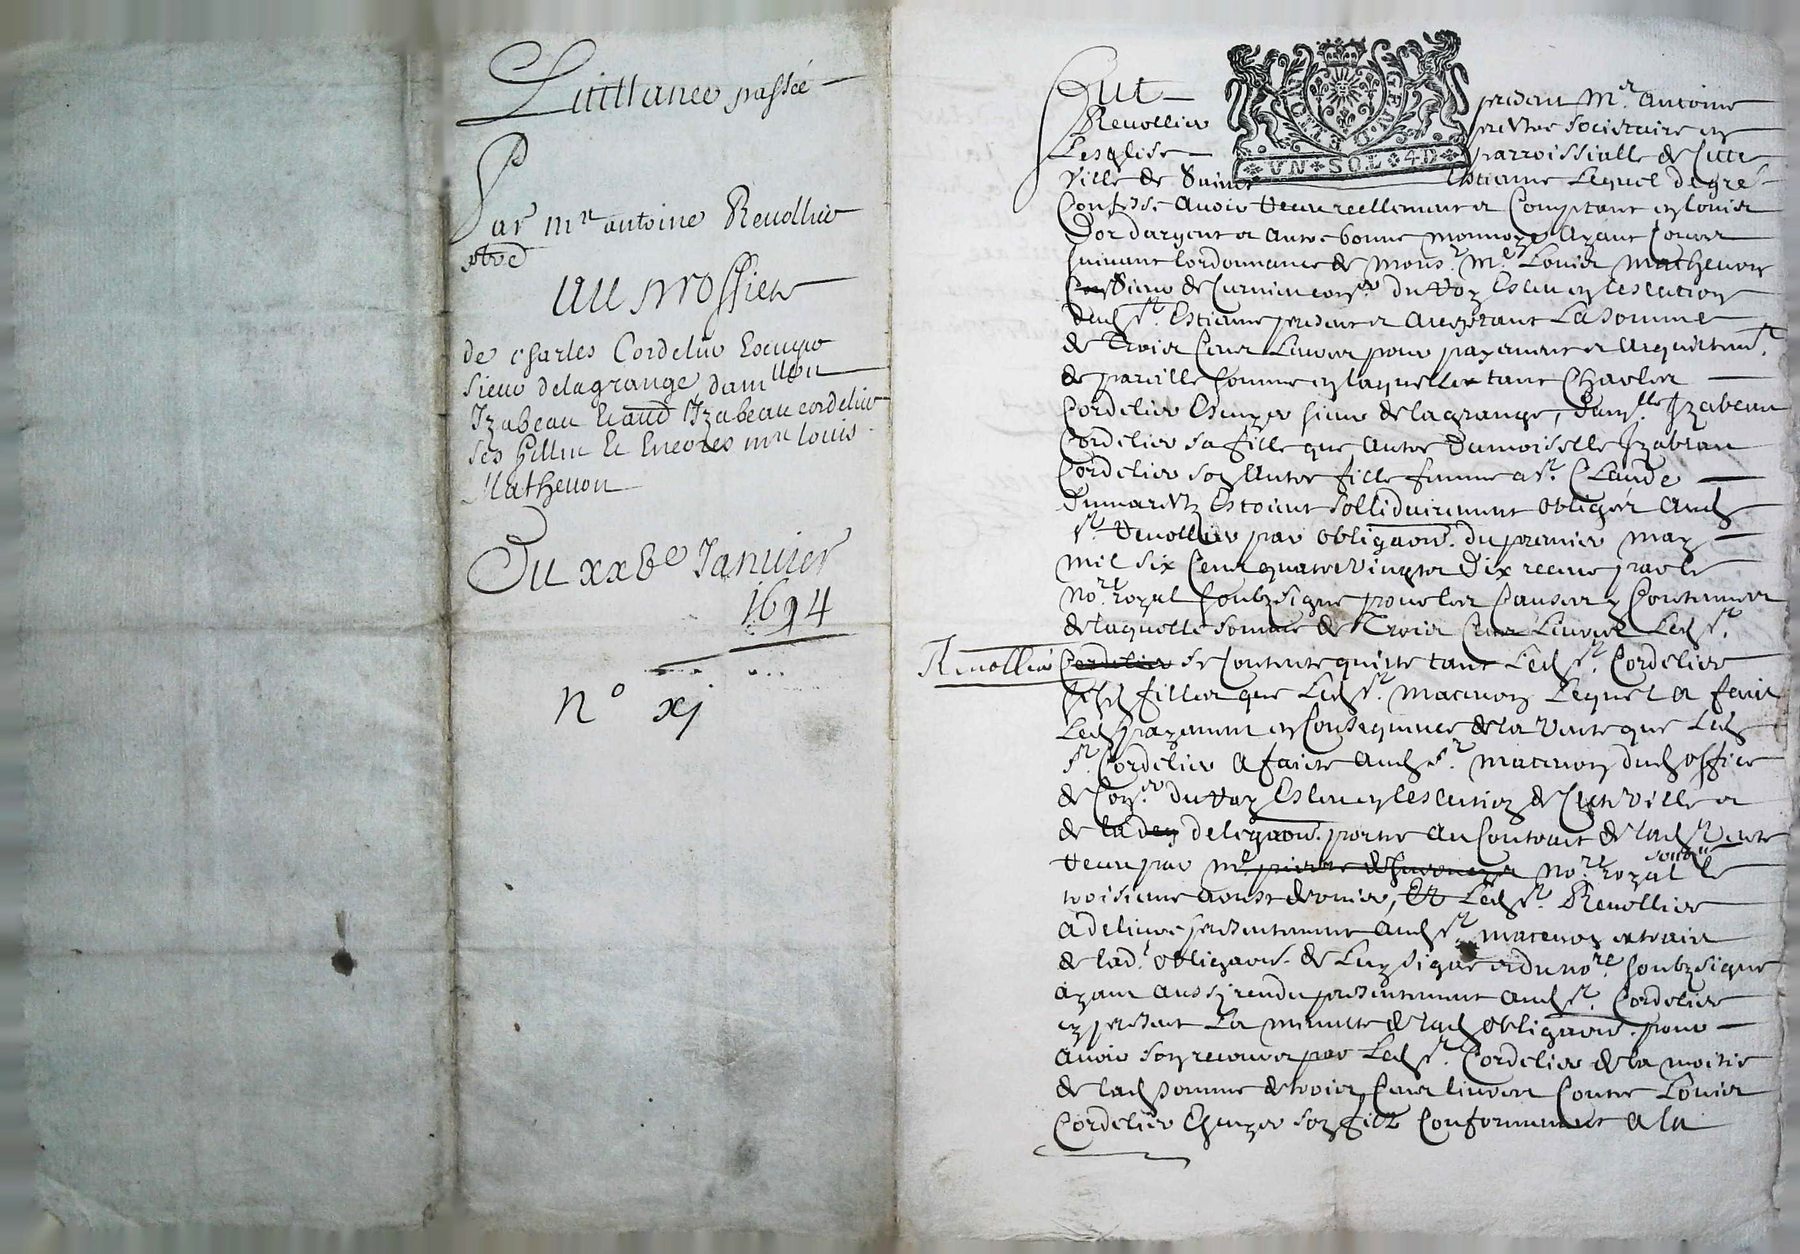 Quittance passée
Par mre antoine Reuollier
pbre
au proffict
de Charles Cordelier Escuyer
sieur delagrange dam.lle
Izabeau et aud Izabeau cordelier
ses filles Et Encores mre louis
Mathevon
Du xxve Januier
1694
n° xj
Fut present Mre. antoine
Reuollier prebtre societaire en
Lesglise parroissialle de Cette
VN SOL 4D
ville de Saint Estienne Lequel de gré
Confesse auoir Receu reellement et Comptant en louis
Dor dargent et autre bonne monnoye Ayant Cours
suiuant lordonnance de monsr. me. Louis matheuon
Sieur de Curnieu conser. du Roy Esleu en leslection
dud st. Estienne present et aceptant La somme
de Trois Cens Liures pour payement et acquittemt.
de pareille somme en laquelle tant Charles
Cordelier Escuyer sieur de lagrange, Dam.lle Izabeau
Cordelier sa fille que autre Damoiselle Izabeau
Cordelier son Autre fille femme a sr. Claude
Dumaretz Estoient sollidairement obligés Aud
sr. Reuollier par obligaon. du premier may
mil six Cens quatre vingts Dix receue par le
nore. royal soubzsigné pour les Causes y Contenues
de laquelle somme de Trois Cens Liures Led sr.
Reuollier Cordelier se Contente quitte tant Led sr. Cordelier
sesd filles que Led sr. mateuon Lequel a fait
Led payement en Consequence de la Vente que Led
sr. Cordelier a faitte aud sr. mateuon dud office
de Conser. du Roy Esleu en leslection de Cette Ville et
de la delegaon. portée au Contrait de lad Vente
Receu par nore. royal soubzné le
troisieme aoust dernier, Et Led sr. Reuollier
a deliuré presentement aud sr. mateuon extrait
de lad. obligaon. de Luy signé et du nore. soubzsigné
ayant aussy rendu presentement aud sr. Cordelier
cy present La minutte de lad obligaon. pour
auoir son recours par Led sr. Cordelier de la moitié
de lad somme de trois Cens liures Contre Louis
Cordelier Escuyer son filz Conformement a la